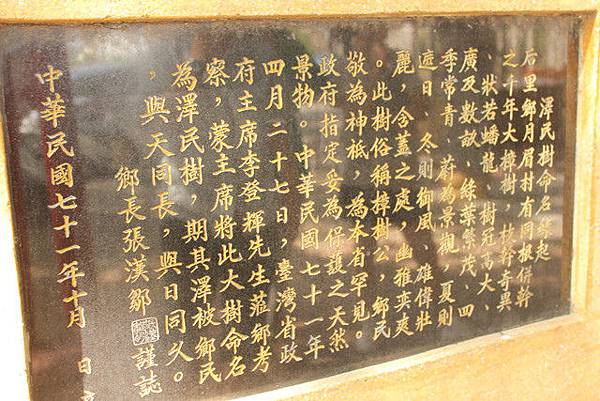 澤民樹命名緣起
后里鄉月眉村有同根併幹
之千年大樟樹、枝幹奇異
、狀若蟠龍、樹冠高大、
廣及數畝、綠葉繁茂、四
季常青、蔚為景觀,夏則
遮日、冬則御風、雄偉壯
麗,含蓋之處,幽雅奕爽
。此樹俗稱樟樹公,鄉民
敬為神祇,為本省罕見。
政府指定妥為保護之天然
景物。中華民國七十一年
四月二十七日,臺灣省政
府主席李登輝先生蒞鄉考
察,蒙主席將此大樹命名
為澤民樹,期其澤被鄉民
,與天同長,與日同久。
鄉長張漢鄒 謹誌
中華民國七十一年十月 日